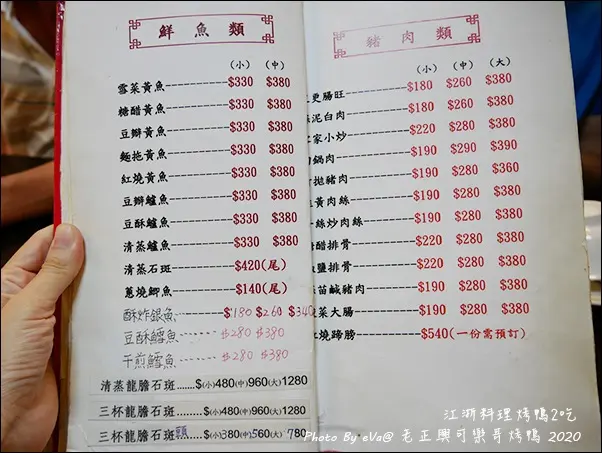 鮮魚類
(小) (中)
雪菜黃魚 $330 $380
糖醋黃魚 $330 $380
豆瓣黃魚 $330 $380
麵拖黃魚 $330 $380
紅燒黃魚 $330 $380
豆瓣鱸魚 $330 $380
豆酥鱸魚 $330 $380
清蒸鱸魚 $330 $380
清蒸石斑 $420(尾)
蔥燒鯽魚 $140(尾)
酥炸銀魚 $180 $260 $340
豆酥鱈魚 $280 $380
干煎鱈魚 $280 $380
清蒸龍膽石斑......$(小)480(中)960(大)1280
三杯龍膽石斑......$(小)480(中)960(大)1280
三杯龍膽石斑頭...$(小)380(中)560(大)780
豬肉類
(小) (中) (大)
更腸旺 $180 $260 $380
泥白肉 $180 $260 $380
家小炒 $220 $280 $380
鍋肉 $190 $290 $390
拋豬肉 $190 $280 $360
黃肉絲 $190 $280 $380
絲炒肉絲 $190 $280 $380
醋排骨 $220 $280 $380
鹽排骨 $220 $280 $380
苗鹹豬肉 $190 $280 $380
菜大腸 $190 $280 $380
燒蹄膀 $540(一份需預訂)
江浙料理烤鴨2吃
Photo By eVa@ 老正興可樂哥烤鴨 2020